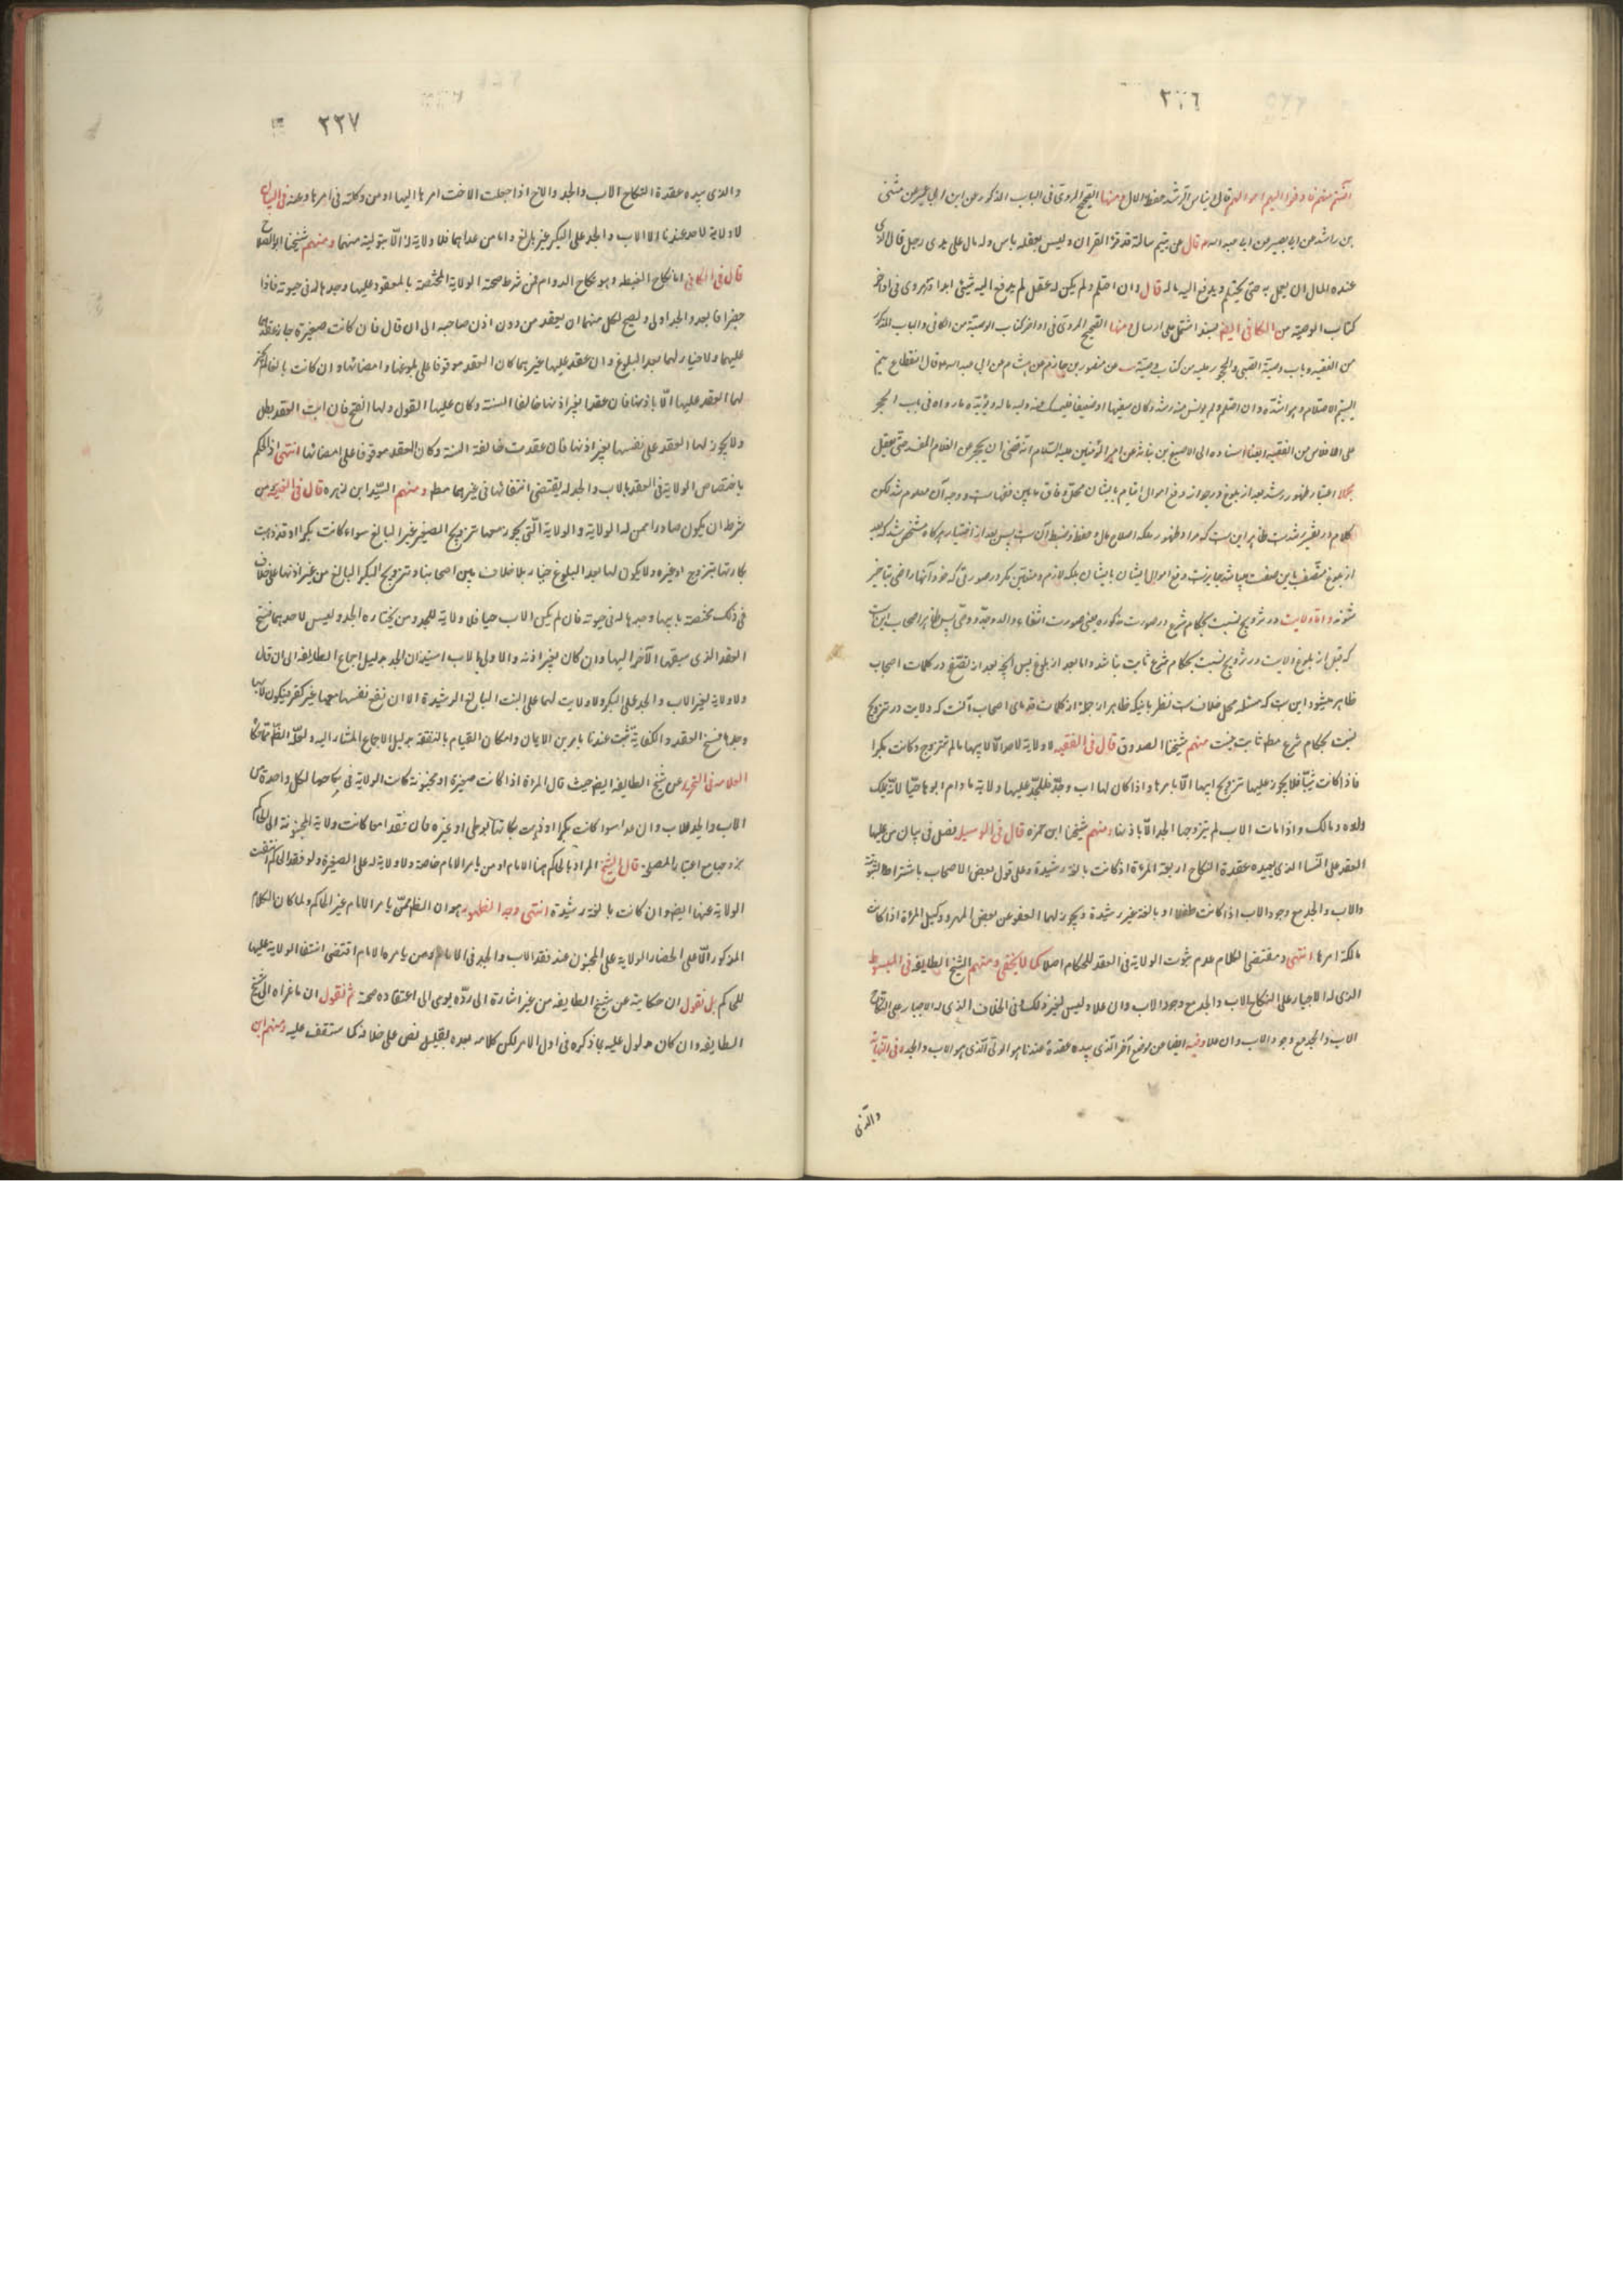 ٣٣٦
آنستم منهم رشدا فادفعوا اليهم اموالهم قال ايناس الرشد حفظ المال ومنها الصحيح المروى فى الباب المذكور عن ابن ابى عمير عن مثنى
بن راشد عن ابى بصير عن ابى عبد الله ع قال عن يتيم سالته قد قرء القران وليس بعقله باس وله مال على يدى رجل فاراد الذى
عنده المال ان يعمل به حتى يحتلم ويدفع اليه ماله قال وان احتلم ولم يكن له عقل لم يدفع اليه شيئ ابدا وروى فى اواخر
كتاب الوصيه من الكافى ايضا بسند اشتمل على ارسال ومنها الصحيح المروى فى اواخر كتاب الوصية من الكافى والباب المذكور
من الفقيه وباب وصية الصبى والمحجور عليه من كتاب وصية يب عن منصور بن حازم عن هشام عن ابى عبد الله ع قال انقطاع يتم
اليتيم الاحتلام وهو اشده وان احتلم ولم يونس منه رشد وكان سفيها او ضعيفا فليمسك عنه وليه ماله ويؤيده ما رواه فى باب الحجر
على الافلاس من الفقيه ايضا اسناده الى الاصبغ بن نباته عن امير المؤمنين عليه السلام انه قضى ان يحجر على الغلام المفسد حتى يعقل
مجملا اعتبار ظهور رشد بعد از بلوغ در جواز دفع اموال ايتام بايشان محل وفاق ما بين فقهاست و وجه آن معلوم شد لكن
كلام در تفسير رشدست ظاهر اين ست كه مراد ظهور ملكه اصلاح مال وحفظ وضبط آن ست پس بعد از اختبار هرگاه مشخص شد كه بعد
از بلوغ متصف باين صفت ميباشد جايزست دفع اموال ايشان بايشان بلكه لازم ومتعين مگر در صورتى كه خود آنها راضى بتاخير
شوند واما ولايت در تزويج نسبت بحكام شرع در صورت مذكوره يعنى صورت انتفاء والد وجد ووصى پس ظاهر اصحاب اين ست
كه قبل از بلوغ ولايت در تزويج نسبت بحكام شرع ثابت نباشد واما بعد از بلوغ پس آنچه بعد از تصفح در كلمات اصحاب
ظاهر ميشود اين ست كه مسئله محل خلاف ست نظر باينكه ظاهر از جمله از كلمات قدماى اصحاب آنست كه ولايت در تزويج
نسبت بحكام شرع مط ثابت نيست منهم شيخنا الصدوق قال فى الفقيه لا ولاية لاحد الا لابيها مالم تتزوج وكانت بكرا
فاذا كانت ثيبا فلا يجوز عليها تزويج ابيها الا بامرها واذا كان لها اب وجد فللجد عليها ولاية ما دام ابوها حيا لانه يملك
ولده وما ملك واذا مات الاب لم يتزوجها الجد الا باذنها ومنهم شيخنا ابن حمزه قال فى الوسيله فصل فى بيان من عليها
العقد على النسا الذى بيده عقدة النكاح اربعة المرءة اذا كانت بالغة رشيدة وعلى قول بعض الاصحاب باشتراط الثيوبة
والاب والجد مع وجود الاب اذا كانت طفلا او بالغة غير رشيدة ويجوز لهما العفو عن بعض المهر ووكيل المرءة اذا كانت
مالكة امرها انتهى ومقتضى الكلام عدم ثبوت الولاية فى العقد للحكام اصلا كما لا يخفى ومنهم الشيخ الطايفه فى المبسوط
الذى له الاجبار على النكاح الاب والجد مع وجود الاب وان علا وليس لغيره ذلك فى الخلاف الذى له الاجبار على النكاح
الاب والجد مع وجود الاب وان علا وفيه ايضا من موضع آخر الذى بيده عقدة عندنا هو الولى الذى هو الاب والجد فى النهاية
والذى
٣٣٧
والذى بيده عقدة النكاح الاب والجد والاخ اذا جعلت الاخت امرها اليها او من وكلته فى امرها وعنه فى التبيان
لا ولاية لاحد عندنا الا الاب والجد على البكر غير بالغ واما من عداهما فلا ولاية له الا بتولية منهما ومنهم شيخنا ابو الصلاح
قال فى الكافى اما نكاح الغبطه وهو نكاح الدوام فمن شرط صحته الولاية المختصة بالمعقود عليها وجدها له فى حيوته فاذا
حضرا فابعد والجد اولى ويصح لكل منهما ان يعقد من دون اذن صاحبه الى ان قال فان كانت صغيرة جاز عقدهما
عليهما ولا خيار لهما بعد البلوغ وان عقد عليها غيرهما كان العقد موقوفا على بلوغها وامضائها وان كانت بالغا لم يجز
لهما العقد عليها الا باذنها فان عقدا بغير اذنها خالفا السنة وكان عليها القبول ولها الفسخ فان ابت العقد بطل
ولا يجوز لها العقد على نفسها بغير اذنهما فان عقدت خالفة السنة وكان العقد موقوفا على امضائهما انتهى اذ الحكم
باختصاص الولاية فى العقد بالاب والجد له يقتضى انتفائها فى غيرهما مط ومنهم السيد ابن زهره قال فى الغنيه من
شرطه ان يكون صادرا ممن له الولاية والولاية التى يجوز معها تزويج الصغير غير البالغ سواء كانت بكرا او قد ذهبت
بكارتها بتزوج او غيره ولا يكون لها بعد البلوغ خيار بلا خلاف بين اصحابنا وتزويج البكر البالغ من غير اذنها على خلاف
فى ذلك مختصة بابيها وجدها له فى حيوته فان لم يكن الاب حيا فلا ولاية للجد ومن يختاره الجد وليس لاحدهما فسخ
العقد الذى سبقها الآخر اليها وان كان بغير اذنه والاولى للاب استيذان الجد بدليل اجماع الطايفه الى ان قال
ولا ولاية لغير الاب والجد على البكر ولا ولايت لهما على البنت البالغ الرشيدة الا ان تضع نفسها معها غير كفو فيكون لابيها
وجدها فسخ العقد والكفاية تثبت عندنا بامرين الايمان وامكان القيام بالنفقة بدليل الاجماع المشار اليه ولعله الظاهر مما حكاه
العلامه فى التحرير عن شيخ الطايفه ايضا حيث قال المراة اذا كانت صغيرة او مجنونة كانت الولاية فى نكاحها لكل واحدة من
الاب والجد للاب وان علا سوا كانت بكرا او ذهبت بكارتها بوطى او غيره فان فقدا معا كانت ولاية المجنونة الى الحاكم
يزوجها مع اعتبار المصلحه قال الشيخ المراد بالحاكم هنا الامام او من يامر الامام خاصة ولا ولاية له على الصغيرة ولو فقد الحاكم انتفت
الولاية عنها ايضا وان كانت بالغة رشيدة انتهى وجه الظهور هو ان الظاهر ممن يامر الامام غير الحاكم ولما كان الكلام
المذكور دالا على انحصار الولايه على المجنون عند فقد الاب والجد فى الامام او من يامره الامام اقتضى انتفا الولاية عليها
للحاكم بل نقول ان حكايته عن شيخ الطايفه من غير اشارة الى رده يومى الى اعتقاده صحته ثم نقول ان ما عزاه الى شيخ
الطايفه وان كان مدلول عليه بما ذكره فى اول الامر لكن كلامه بعده بقليل نص على خلافه كما ستقف عليه ومنهم ابن